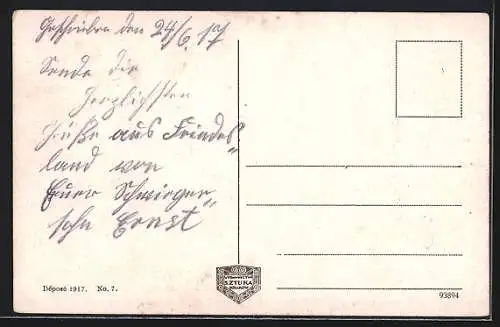 Geschrieben den 24/6. 17
Sende die
herzlichsten
Grüße aus Feindes„
land von
Euer Schwieger„
sohn Ernst
SZTUKA
Déposé 1917. No. 7.
93894